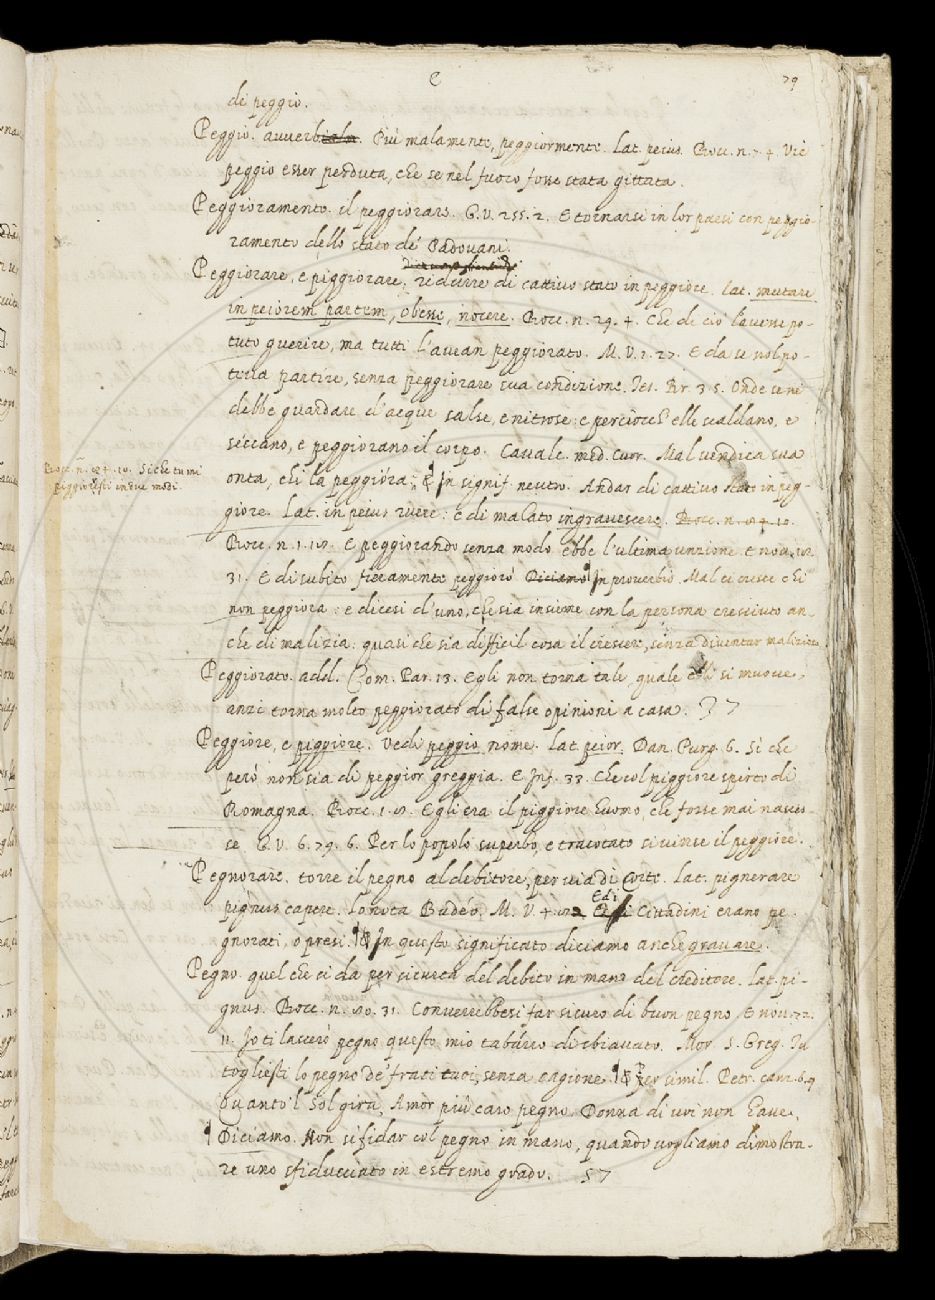 e 79
di peggio.
Peggio. avverbiale. Più malamente, peggiormente. Lat. peius. Bocc. n. 7. 4. Vie
peggio esser perduta, che se nel fuoco fosse stata gittata.
Peggioramento. il peggiorare. G. V. 255. 2. E tornarsi in lor paesi con peggio-
ramento dello stato de' Padovani.
Peggiorare, e piggiorare. ridurre di cattivo stato in peggiore. Lat. mutare
in peiorem partem, obesse, nocere. Bocc. n. 29. 4. Che di ciò l'avesse po-
tuto guerire, ma tutti l'avean peggiorato. M. V. 1. 27. E da se nol po-
teva partire, senza peggiorare sua condizione. Tes. Br. 3. 5. Onde se ne
debbe guardare d'acque salse, e nitrose: e perciocch' elle scaldano, e
seccano, e peggiorano il corpo. Cavalc. med. cuor. Mal vendica sua
Bocc. n. 84. 10. Siche tu mi
piggiorasti in due modi.
onta, chi la peggiora. & In signif. neutro. Andar di cattivo stato in peg-
giore. Lat. in peius ruere: e di malato ingravescere. Bocc. n. 84. 10.
Bocc. n. 1. 18. E peggiorando senza modo ebbe l'ultima unzione. E nov. 18
31. E di subito fieramente peggiorò. Diciamo In proverbio. Mal ci cresce chi
non peggiora: e dicesi d'uno, che sia insieme con la persona cresciuto an-
che di malizia: quasi che sia difficil cosa il crescere, senza diventar malizioso
Peggiorato. add. Com. Par. 13. Egli non torna tale, quale elli si muove,
anzi torna molto peggiorato di false opinioni a casa. 37
Peggiore, e piggiore. Vedi peggio nome. Lat. peior. Dan. Purg. 6. Sì che
però non sia di peggior greggia. E Inf. 33. Che col piggiore spirto di
Romagna. Bocc. 1. 8. Egli era il piggiore huomo, che forse mai nasces-
se G. V. 6. 79. 6. Per lo popolo superbo, e tracotato si vinse il peggiore.
Pegnorare. torre il pegno al debitore, per via di Corte. Lat. pignerare
pignus capere. lo nota Budéo. M. V. 4. Ed i Cittadini erano pe-
gnorati, o presi. & In questo significato diciamo anche gravare.
Pegno. quel che si da per sicurtà del debito in mano del creditore. Lat. pi-
gnus. Bocc. n. 80. 31. Converrebbesi far sicuro di buon pegno. E nov. 72.
11. Io ti lascerò pegno questo mio tabarro di sbiavato. Mor. S. Greg. Tu
togliesti lo pegno de' frati tuoi, senza cagione. & Per simil. Petr. canz. 6. 9
Quanto'l Sol gira, Amor più caro pegno Donna di voi non have.
Diciamo. Non si fidar col pegno in mano, quando vogliamo dimostra-
re uno sfiducciato in estremo grado. 57